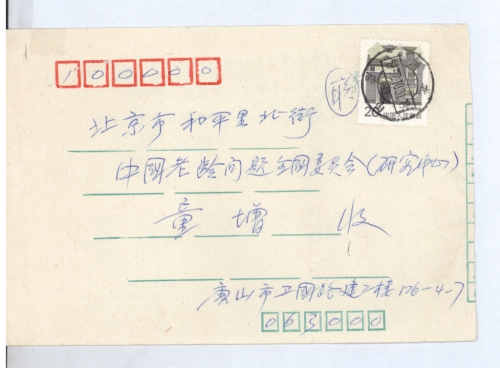 100000
北京市和平里北街
中国老龄问题全国委员会(研究中心)
童增 收
唐山市卫国路建工楼126-4-7
063000
20